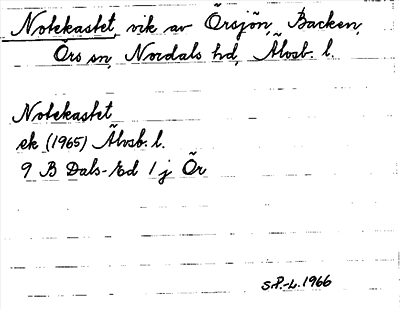 Notekastet, vik av Örsjön, Backen,
Örs sn, Nordals hd, Älvsb. l.
Notekastet
ek (1965) Älvsb. l.
9 B Dals-Ed 1 j Ör
S.P.-L. 1966